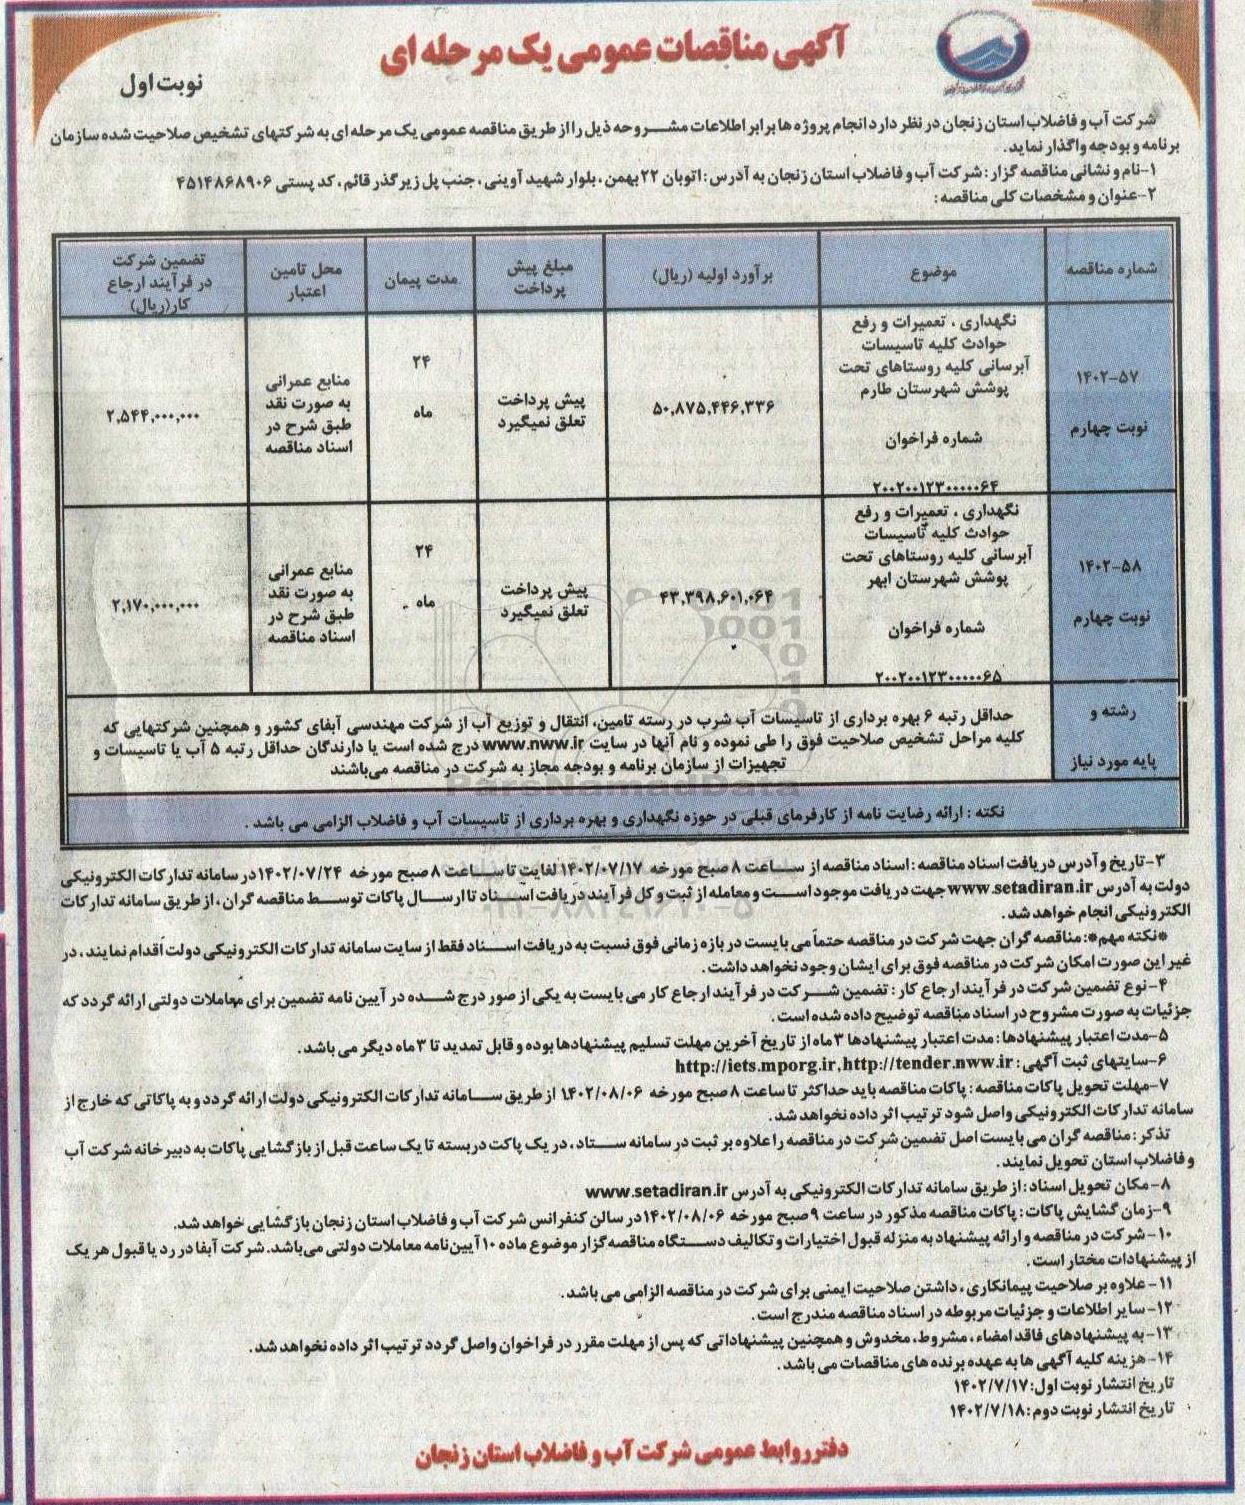 آگهی مناقصات عمومی یک مرحله ای
نوبت اول
شرکت آب و فاضلاب استان زنجان در نظر دارد انجام پروژه ها برابر اطلاعات مشروحه ذیل را از طریق مناقصه عمومی یک مرحله ای به شرکتهای تشخیص صلاحیت شده سازمان
برنامه و بودجه واگذار نماید.
۱-نام و نشانی مناقصه گزار : شرکت آب و فاضلاب استان زنجان به آدرس : اتوبان ۲۲ بهمن ، بلوار شهید آوینی ، جنب پل زیر گذر قائم ، کد پستی ۴۵۱۴۸۶۸۹۰۶
۲-عنوان و مشخصات کلی مناقصه :
شماره مناقصه
موضوع
برآورد اولیه (ریال)
مبلغ پیش
پرداخت
مدت پیمان
محل تامین
اعتبار
تضمین شرکت
در فرآیند ارجاع
کار(ریال)
۱۴۰۲-۵۷
نوبت چهارم
نگهداری ، تعمیرات و رفع
حوادث کلیه تاسیسات
آبرسانی کلیه روستاهای تحت
پوشش شهرستان طارم
شماره فراخوان
۲۰۰۲۰۰۱۲۳۰۰۰۰۰۶۴
۵۰,۸۷۵,۴۴۶,۳۳۶
پیش پرداخت
تعلق نمیگیرد
۲۴
ماه
منابع عمرانی
به صورت نقد
طبق شرح در
اسناد مناقصه
۲,۵۴۴,۰۰۰,۰۰۰
۱۴۰۲-۵۸
نوبت چهارم
نگهداری ، تعمیرات و رفع
حوادث کلیه تاسیسات
آبرسانی کلیه روستاهای تحت
پوشش شهرستان ابهر
شماره فراخوان
۲۰۰۲۰۰۱۲۳۰۰۰۰۰۶۵
۴۳,۳۹۸,۶۰۱,۰۶۴
پیش پرداخت
تعلق نمیگیرد
۲۴
ماه
منابع عمرانی
به صورت نقد
طبق شرح در
اسناد مناقصه
۲,۱۷۰,۰۰۰,۰۰۰
رشته و
پایه مورد نیاز
حداقل رتبه ۶ بهره برداری از تاسیسات آب شرب در رسته تامین، انتقال و توزیع آب از شرکت مهندسی آبفای کشور و همچنین شرکتهایی که
کلیه مراحل تشخیص صلاحیت فوق را طی نموده و نام آنها در سایت www.nww.ir درج شده است یا دارندگان حداقل رتبه ۵ آب یا تاسیسات و
تجهیزات از سازمان برنامه و بودجه مجاز به شرکت در مناقصه می‌باشند
ParsNamadData
نکته : ارائه رضایت نامه از کارفرمای قبلی در حوزه نگهداری و بهره برداری از تاسیسات آب و فاضلاب الزامی می باشد .
۳-تاریخ و آدرس دریافت اسناد مناقصه : اسناد مناقصه از ساعت ۸ صبح مورخه ۱۴۰۲/۰۷/۱۷ لغایت تا ساعت ۸ صبح مورخه ۱۴۰۲/۰۷/۲۴ در سامانه تدارکات الکترونیکی
دولت به آدرس www.setadiran.ir جهت دریافت موجود است و معامله از ثبت و کل فرآیند دریافت اسناد تا ارسال پاکات توسط مناقصه گران ، از طریق سامانه تدارکات
الکترونیکی انجام خواهد شد .
*نکته مهم*: مناقصه گران جهت شرکت در مناقصه حتماً می بایست در بازه زمانی فوق نسبت به دریافت اسناد فقط از سایت سامانه تدارکات الکترونیکی دولت اقدام نمایند ، در
غیر این صورت امکان شرکت در مناقصه فوق برای ایشان وجود نخواهد داشت .
۴-نوع تضمین شرکت در فرآیند ارجاع کار : تضمین شرکت در فرآیند ارجاع کار می بایست به یکی از صور درج شده در آیین نامه تضمین برای معاملات دولتی ارائه گردد که
جزئیات به صورت مشروح در اسناد مناقصه توضیح داده شده است .
۵-مدت اعتبار پیشنهادها : مدت اعتبار پیشنهادها ۳ ماه از تاریخ آخرین مهلت تسلیم پیشنهادها بوده و قابل تمدید تا ۳ ماه دیگر می باشد .
۶-سایتهای ثبت آگهی : http://iets.mporg.ir,http://tender.nww.ir
۷-مهلت تحویل پاکات مناقصه : پاکات مناقصه باید حداکثر تا ساعت ۸ صبح مورخه ۱۴۰۲/۰۸/۰۶ از طریق سامانه تدارکات الکترونیکی دولت ارائه گردد و به پاکاتی که خارج از
سامانه تدارکات الکترونیکی واصل شود ترتیب اثر داده نخواهد شد .
تذکر : مناقصه گران می بایست اصل تضمین شرکت در مناقصه را علاوه بر ثبت در سامانه ستاد ، در یک پاکت دربسته تا یک ساعت قبل از بازگشایی پاکات به دبیرخانه شرکت آب
و فاضلاب استان تحویل نمایند .
۸-مکان تحویل اسناد : از طریق سامانه تدارکات الکترونیکی به آدرس www.setadiran.ir
۹-زمان گشایش پاکات : پاکات مناقصه مذکور در ساعت ۹ صبح مورخه ۱۴۰۲/۰۸/۰۶ در سالن کنفرانس شرکت آب و فاضلاب استان زنجان بازگشایی خواهد شد.
۱۰-شرکت در مناقصه و ارائه پیشنهاد به منزله قبول اختیارات و تکالیف دستگاه مناقصه گزار موضوع ماده ۱۰ آیین‌نامه معاملات دولتی می‌باشد. شرکت آبفا در رد یا قبول هر یک
از پیشنهادات مختار است .
۱۱-علاوه بر صلاحیت پیمانکاری ، داشتن صلاحیت ایمنی برای شرکت در مناقصه الزامی می باشد .
۱۲-سایر اطلاعات و جزئیات مربوطه در اسناد مناقصه مندرج است .
۱۳-به پیشنهادهای فاقد امضاء ، مشروط ، مخدوش و همچنین پیشنهاداتی که پس از مهلت مقرر در فراخوان واصل گردد ترتیب اثر داده نخواهد شد .
۱۴-هزینه کلیه آگهی ها به عهده برنده های مناقصات می باشد .
تاریخ انتشار نوبت اول : ۱۴۰۲/۷/۱۷
تاریخ انتشار نوبت دوم : ۱۴۰۲/۷/۱۸
دفتر روابط عمومی شرکت آب و فاضلاب استان زنجان